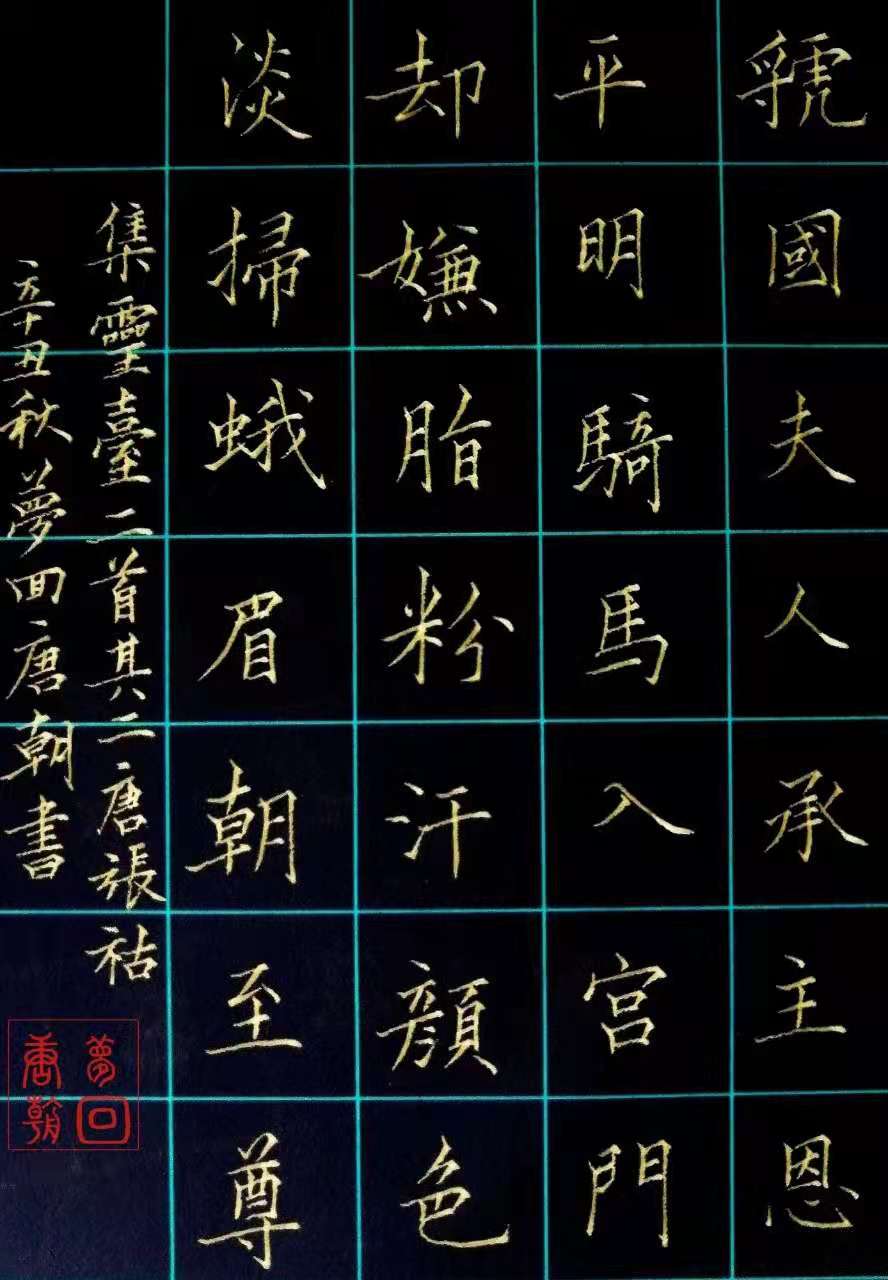 虢國夫人承主恩
平明騎馬入宫門
却嫌脂粉汗顔色
淡掃蛾眉朝至尊
集靈臺二首其二唐張祜
辛丑秋夢回唐朝書
夢回
唐朝